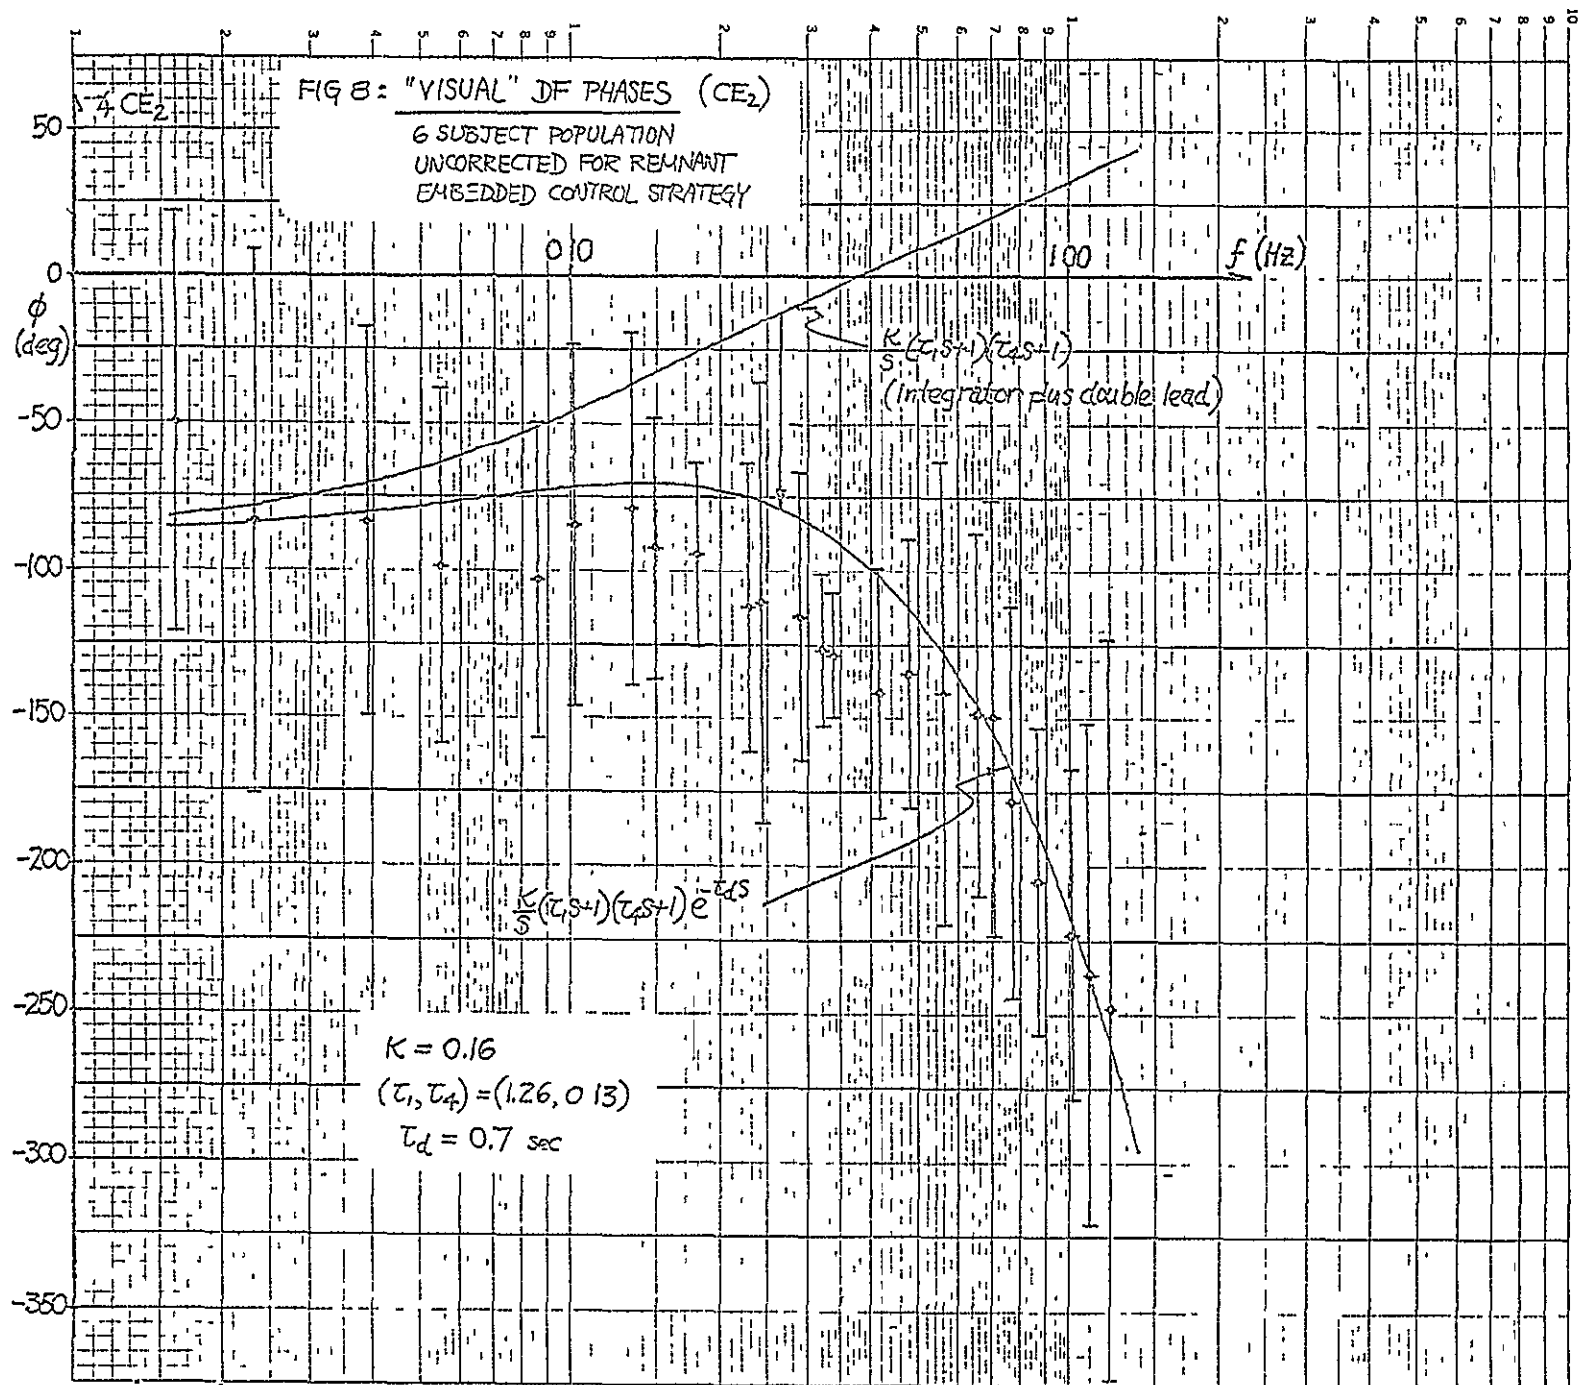 1 2 3 4 5 6 7 8 9 1 2 3 4 5 6 7 8 9 1 2 3 4 5 6 7 8 9 10
FIG 8: "VISUAL" DF PHASES (CE₂)
6 SUBJECT POPULATION
UNCORRECTED FOR REMNANT
EMBEDDED CONTROL STRATEGY
∡ CE₂
50
0
φ
(deg)
-50
-100
-150
-200
-250
-300
-350
0 10
1 00
f (Hz)
K/S (τ₁S+1)(τ₄S+1)
(integrator plus double lead)
K/S (τ₁S+1)(τ₄S+1) e^-τdS
K = 0.16
(τ₁, τ₄) = (1.26, 0 13)
τd = 0.7 sec